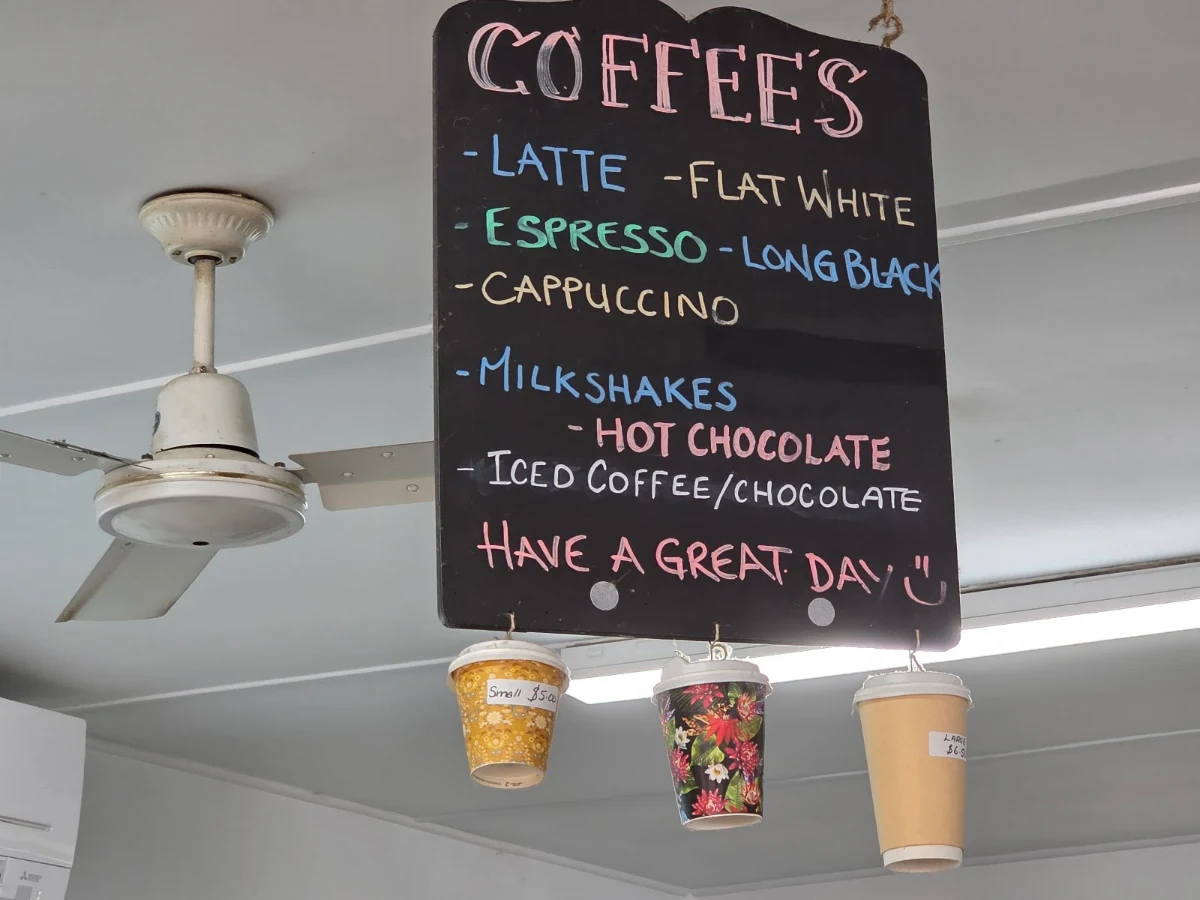 COFFEE'S
- LATTE - FLAT WHITE
- ESPRESSO - LONG BLACK
- CAPPUCCINO
- MILKSHAKES
- HOT CHOCOLATE
- ICED COFFEE/CHOCOLATE
HAVE A GREAT DAY
Small $5.00
LARGE